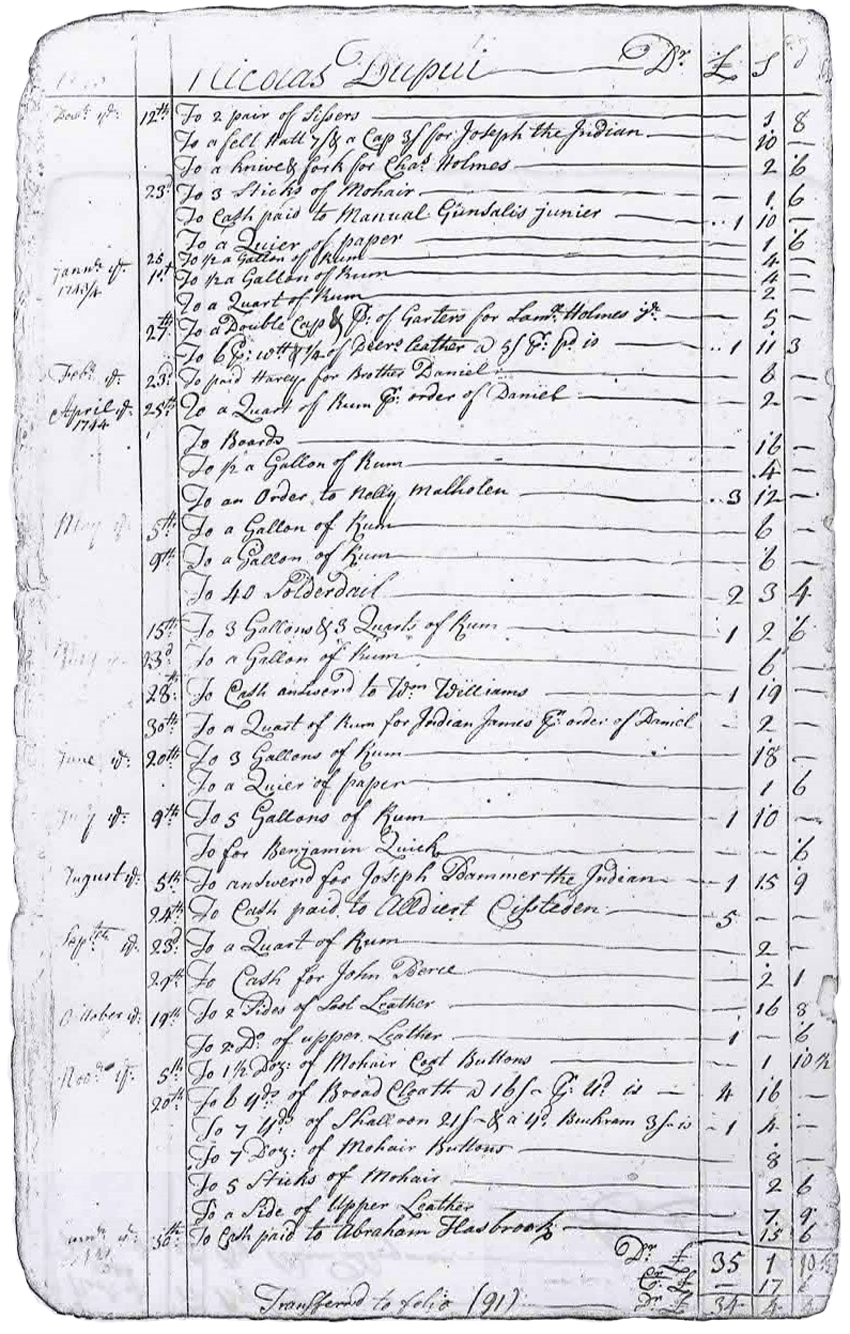 Nicolas Dupui Dr £ s d
Decr ye 12th To 2 pair of Sissers — 1 8
To a felt Hatt 7/ & a Cap 3/ for Joseph the Indian — 10 —
To a knive & fork for Chas Holmes — 2 6
23d To 3 Sticks of Mohair — 1 6
To Cash paid to Manual Gunsalis junier — 1 10 —
To a Quier of paper — 1 6
25 To 1/2 a Gallon of Rum — 4 —
Janry ye 1st To 1/2 a Gallon of Rum — 4 —
1743/4
To a Quart of Rum — 2 —
27th To a Double Cap & Pr of Garters for Samll Holmes — 5 —
To 6 wtt & 1/4 of Deers leather a 5/ is — 1 11 3
Febr ye 23d To paid for Brother Daniel — 6 —
April ye 25th To a Quart of Rum Pr order of Daniel — 2 —
1744
To Boards — 16 —
To 1/2 a Gallon of Rum — 4 —
To an Order to Nelly Malholen — 3 12 —
May ye 5th To a Gallon of Rum — 6 —
9th To a Gallon of Rum — 6 —
To 40 Solderdail — 2 3 4
15th To 3 Gallons & 3 Quarts of Rum — 1 2 6
23d To a Gallon of Rum — 6 —
28th To Cash answerd to Wm Williams — 1 19 —
30th To a Quart of Rum for Indian James Pr order of Daniel — 2 —
June ye 20th To 3 Gallons of Rum — 18 —
To a Quier of paper — 1 6
July ye 9th To 5 Gallons of Rum — 1 10 —
To for Benjamin Quick — 6
August ye 5th To answerd for Joseph the Indian — 1 15 9
24th To Cash paid to Alldiert — 5 — —
Septbr ye 23d To a Quart of Rum — 2 —
29th To Cash for John Pierce — 2 1
October ye 19th To 2 Sides of Soal Leather — 16 8
To 2 Do of upper Leather — 1 — 6
Novr ye 5th To 1 1/2 Doz: of Mohair Coat Buttons — 1 10 1/2
20th To 6 yds of Broad Cloath a 16/ Pr Yd is — 4 16 —
To 7 Yds of Shalloon 21/ & a Yd Buckram 3/ is — 1 4 —
To 7 Doz: of Mohair Buttons — 8 —
To 5 Sticks of Mohair — 2 6
To a Side of Upper Leather — 7 9
30th To Cash paid to Abraham Hasbrook — 15 6
Dr £ 35 1 10 1/2
Cr £ — 17
Transferrd to folio (91) Dr £ 34